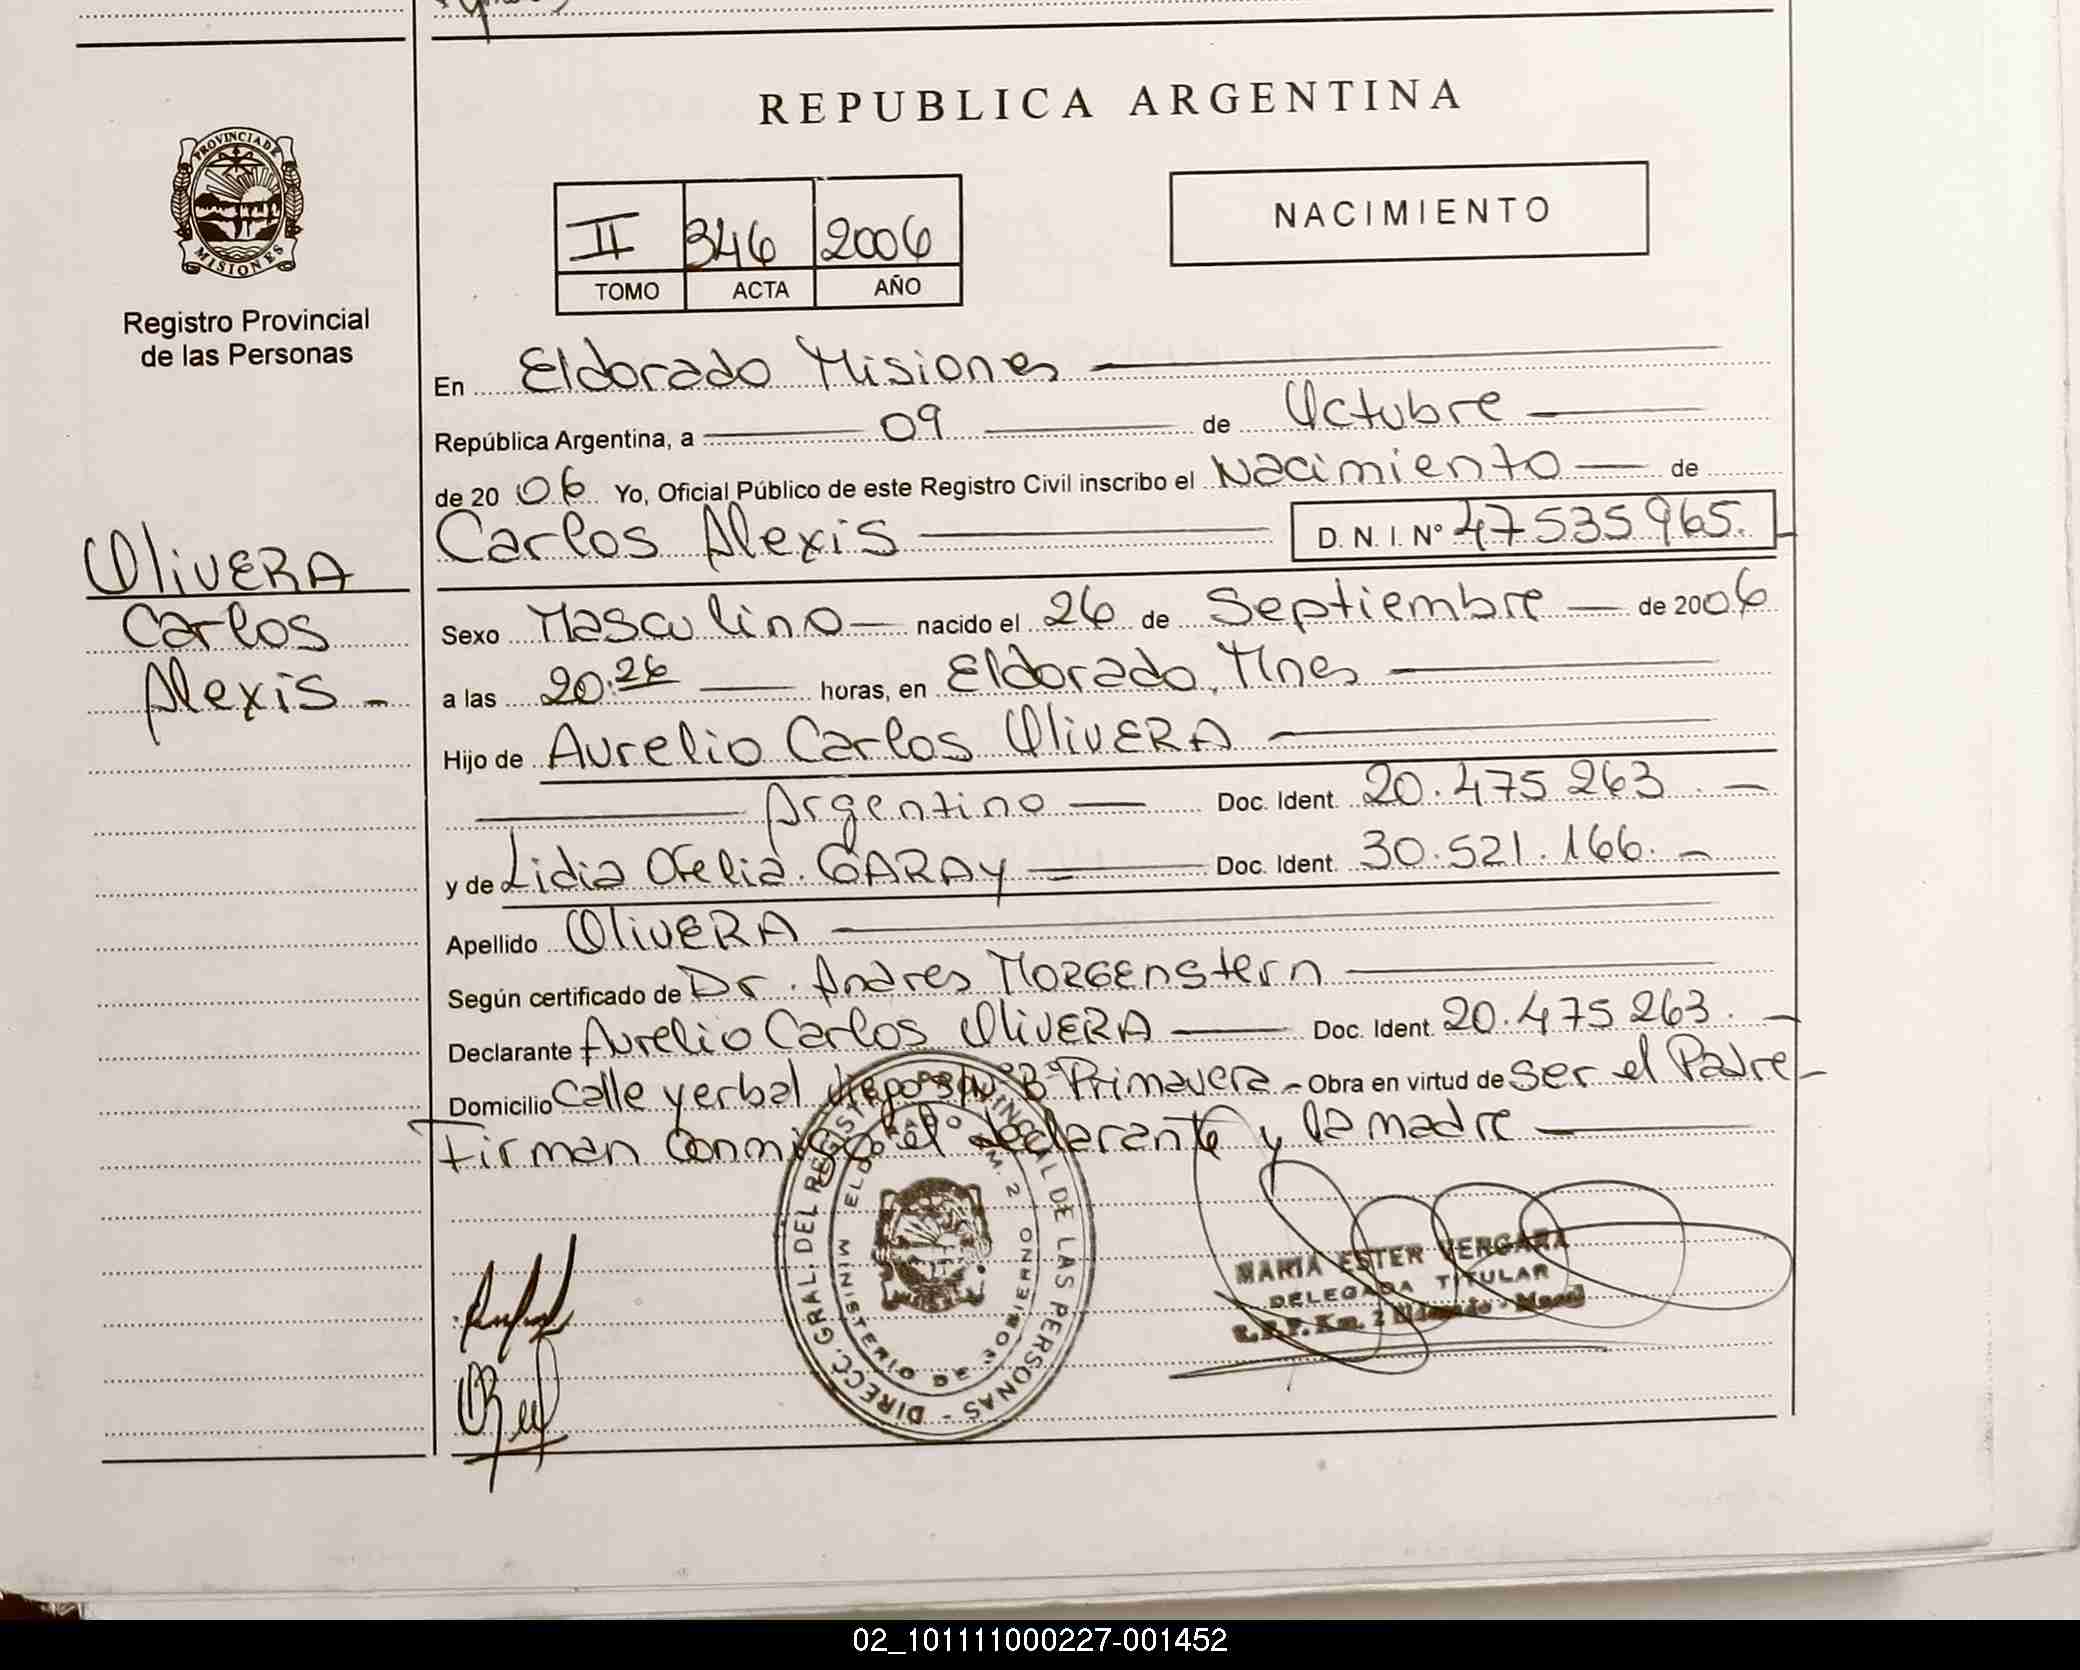 REPUBLICA ARGENTINA
PROVINCIA DE MISIONES
Registro Provincial
de las Personas
II 346 2006
TOMO ACTA AÑO
NACIMIENTO
OliVERA
Carlos
Alexis -
En Eldorado Misiones
República Argentina, a 09 de Octubre
de 20 06 Yo, Oficial Público de este Registro Civil inscribo el Nacimiento de
Carlos Alexis D. N. I. Nº 47535965.
Sexo Masculino nacido el 26 de Septiembre de 2006
a las 20.26 horas, en Eldorado, Mnes
Hijo de Aurelio Carlos OliVERA
Argentino Doc. Ident. 20.475 263
y de Lidia Ofelia. GARAY Doc. Ident. 30.521.166.
Apellido OliVERA
Según certificado de Dr. Andres MORGEnstern
Declarante Aurelio Carlos OliVERA Doc. Ident. 20.475 263.
Domicilio Calle yerbal s/Nº Bº Primavera - Obra en virtud de ser el Padre -
Firman conmigo el declarante y la madre
DIRECC. GRAL. DEL REGISTRO PROVINCIAL DE LAS PERSONAS -
MINISTERIO DE GOBIERNO
ELDORADO KM. 2
MARIA ESTER VERGARA
DELEGADA TITULAR
R.P.P. Km. 2 Eldorado - Mnes
02_101111000227-001452